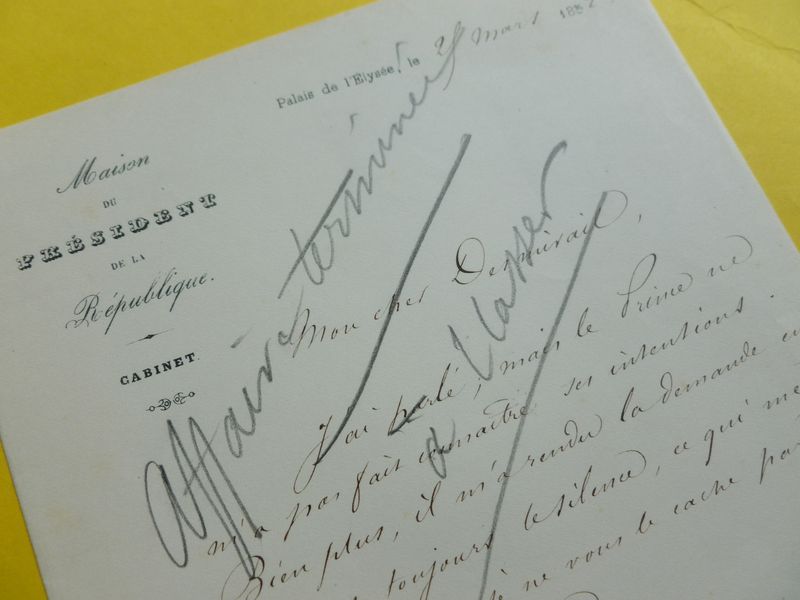 Palais de l'Elysée, le 25 mars 1852
Maison
DU
PRÉSIDENT
DE LA
République.
CABINET.
Affaire terminée
à classer
Mon cher Desmirail,
J'ai parlé, mais le Prince ne
m'a pas fait connaître ses intentions.
Bien plus, il m'a rendu la demande en
toujours le silence, ce qui me
ne vous le cache pas